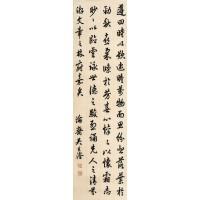 遵四時以歎逝瞻萬物而思紛悲落葉於
勁秋喜柔條於芳春心懍懍以懷霜志
眇眇以臨雲詠世德之駿烈誦先人之清芬
游文章之林府
瀹齋吳其濬